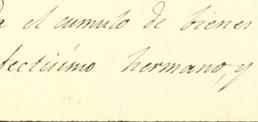 a el cumulo de bienes
fectisimo hermano, y